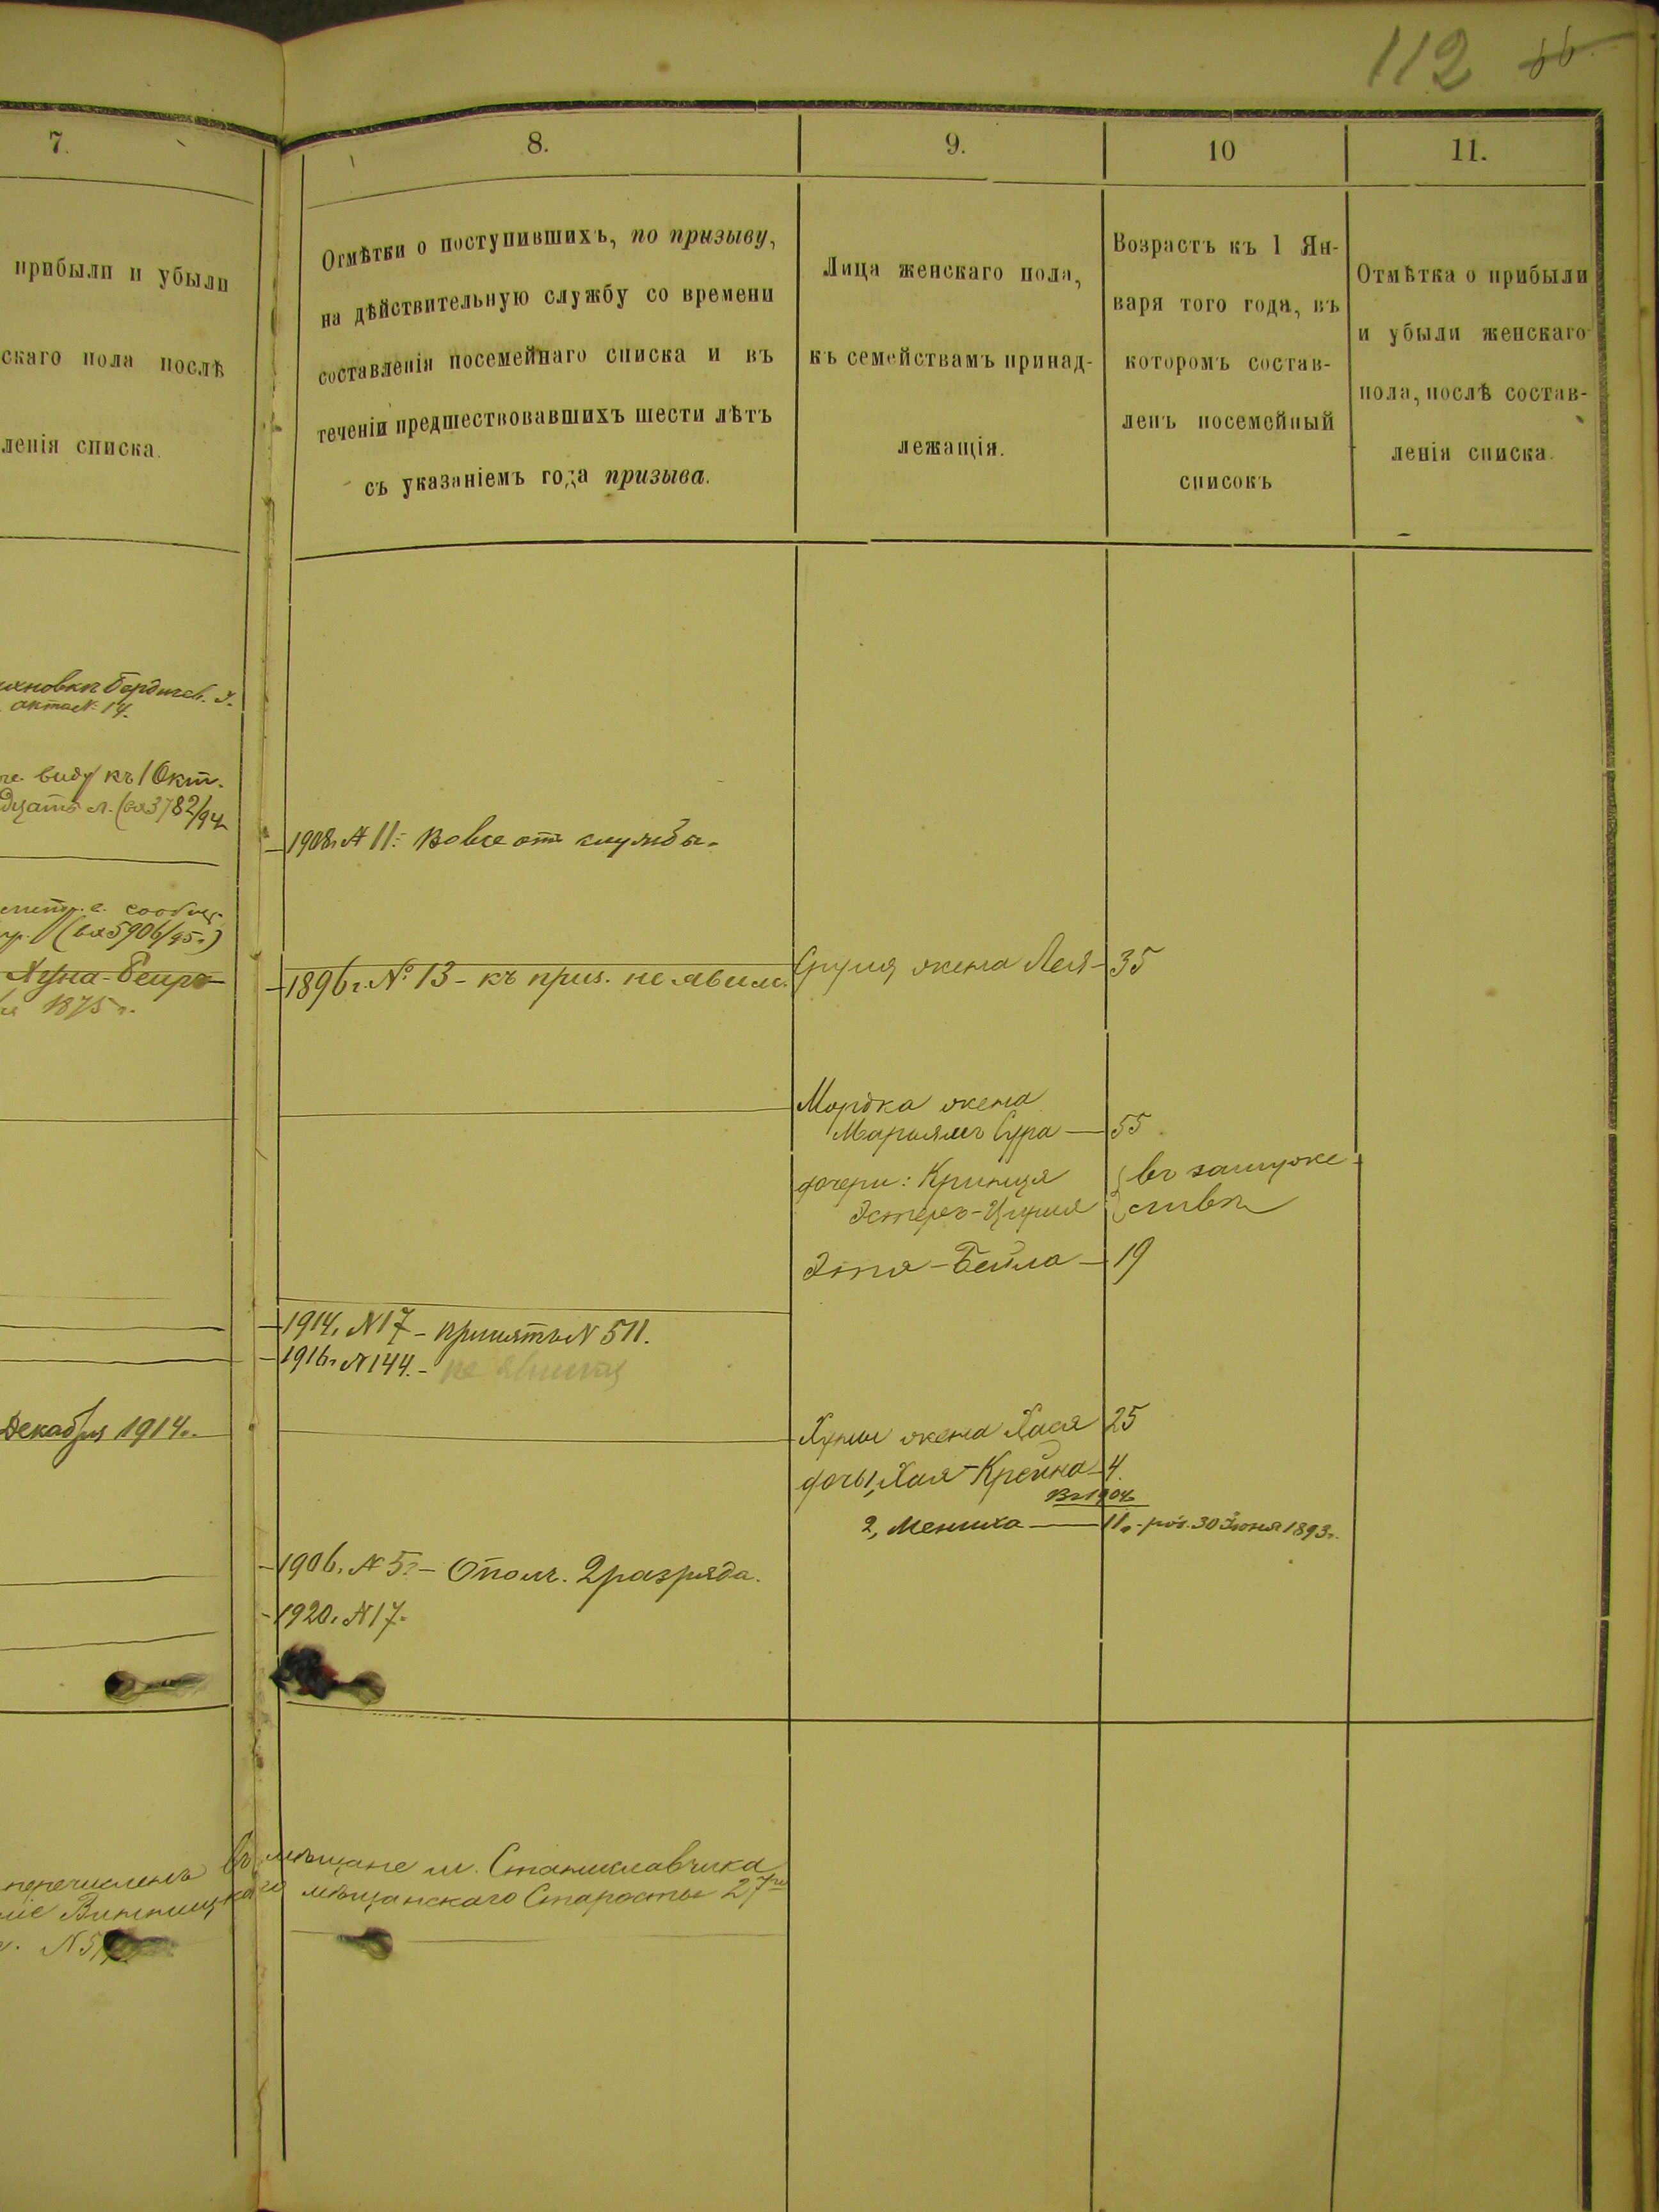 112
7.
8.
9.
10
11.
прибыли и убыли
скаго пола послѣ
ленія списка.
Отмѣтки о поступившихъ, по призыву,
на дѣйствительную службу со времени
составленія посемейнаго списка и въ
теченіи предшествовавшихъ шести лѣтъ
съ указаніемъ года призыва.
Лица женскаго пола,
къ семействамъ принад-
лежащія.
Возрастъ къ 1 Ян-
варя того года, въ
которомъ состав-
ленъ посемейный
списокъ
Отмѣтка о прибыли
и убыли женскаго
пола, послѣ состав-
ленія списка.
Бердичев. у.
акта № 14.
виду къ 1 Окт.
3782/94
1908г. № 11: Вовсе отъ службы.
(вх 5906/95г.)
1875 г.
1896 г. № 13 - къ приз. не явил.
жена Лея - 35
Мордка жена
Марьямъ Сура — 55
дочери: Криниця
Эстеръ-Цирля
въ замуже-
ствѣ
Этя - Бейла - 19
1914г. № 17 - принятъ № 511.
1916г. № 144. - не явился
Декабря 1914г.
жена Хася 25
дочь 1, Хая - Крейна - 4.
Въ 1904г.
2, Мениха — 11г. - род. 30 Іюня 1893г.
1906г. № 5 - Ополч. 2 разряда.
1920г. № 17.
перечисленъ въ мѣщане м. Станиславчика
Винницкаго мѣщанскаго Старосты 27го